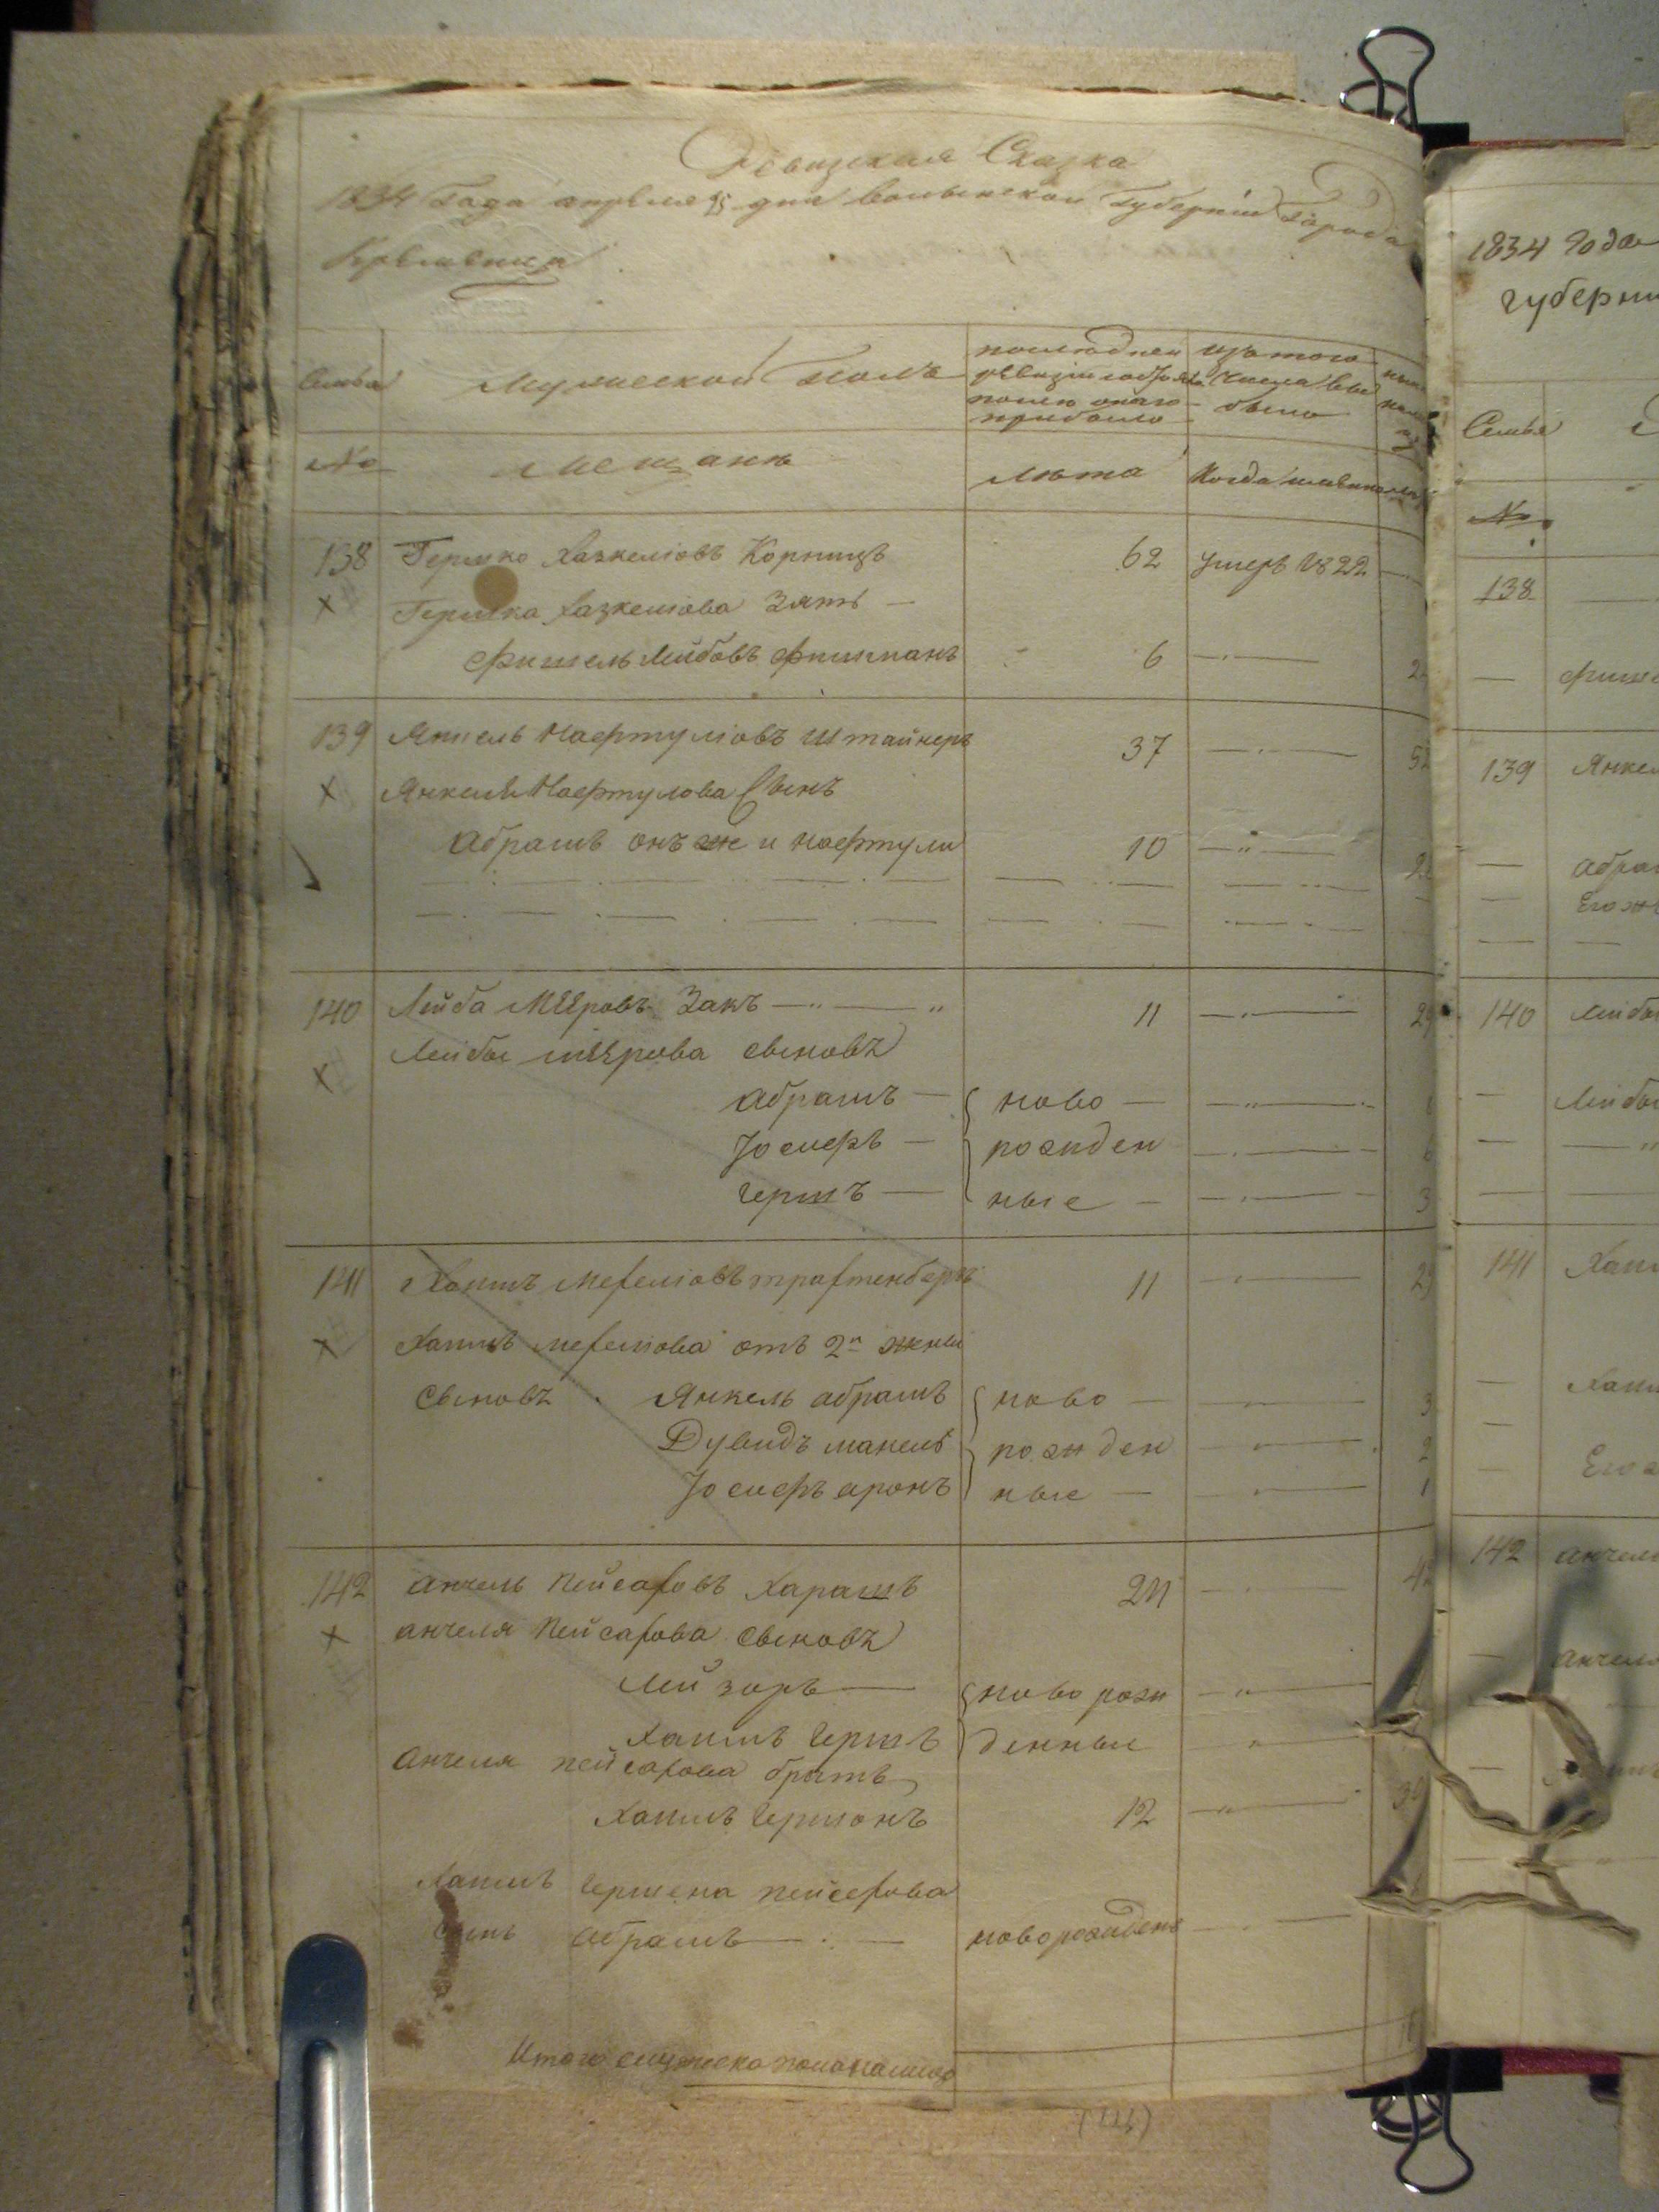 Ревизская Сказка
1834 Года апреля 25 дня Волынской Губернiи Города
Кременца
Семья
Мужескои Полъ
последнеи ревизiи состояло и после оного прибыло
изъ того числа выбыло
№
Мещане
Лета
Когда именно
138
Гершко Хазкелiовъ Корницъ
62
умеръ 1822
Гершка Хазкелiова Зять
Фишель Лейбовъ Фишманъ
6
139
Янкель Нафтулiовъ Штайнеръ
37
Янкеля Нафтулова Сынъ
Абрамъ онъ же и Нафтули
10
140
Лейба Мееровъ Закъ
11
29
Лейбы Меерова сыновъ
Абрамъ
ново
Iосифъ
рожден
6
Гершъ
ные
3
141
Хаимъ Мехелiовъ Трахтенбергъ
11
29
Хаимъ Мехелiова отъ 2й жены
Сыновъ Янкель абрамъ
ново
3
Дувидъ манель
рожден
2
Iосифъ аронъ
ные
1
142
Анчель Пейсаховъ Харашъ
24
42
анчеля Пейсахова сыновъ
Лейзоръ
ново рож
Хаимъ Гершъ
денные
Анчеля пейсахова братъ
Хаимъ Гершонъ
12
30
Хаимъ Гершона пейсехова
сынъ Абрамъ
новорожденъ
Итого мужеска пола налицо
1834 года
губерни
Семья
№
138
фише
139
Янкел
абрам
Его же
140
Лейбы
Лейбы
141
Хаим
Хаим
Его
142
анчел
анчел